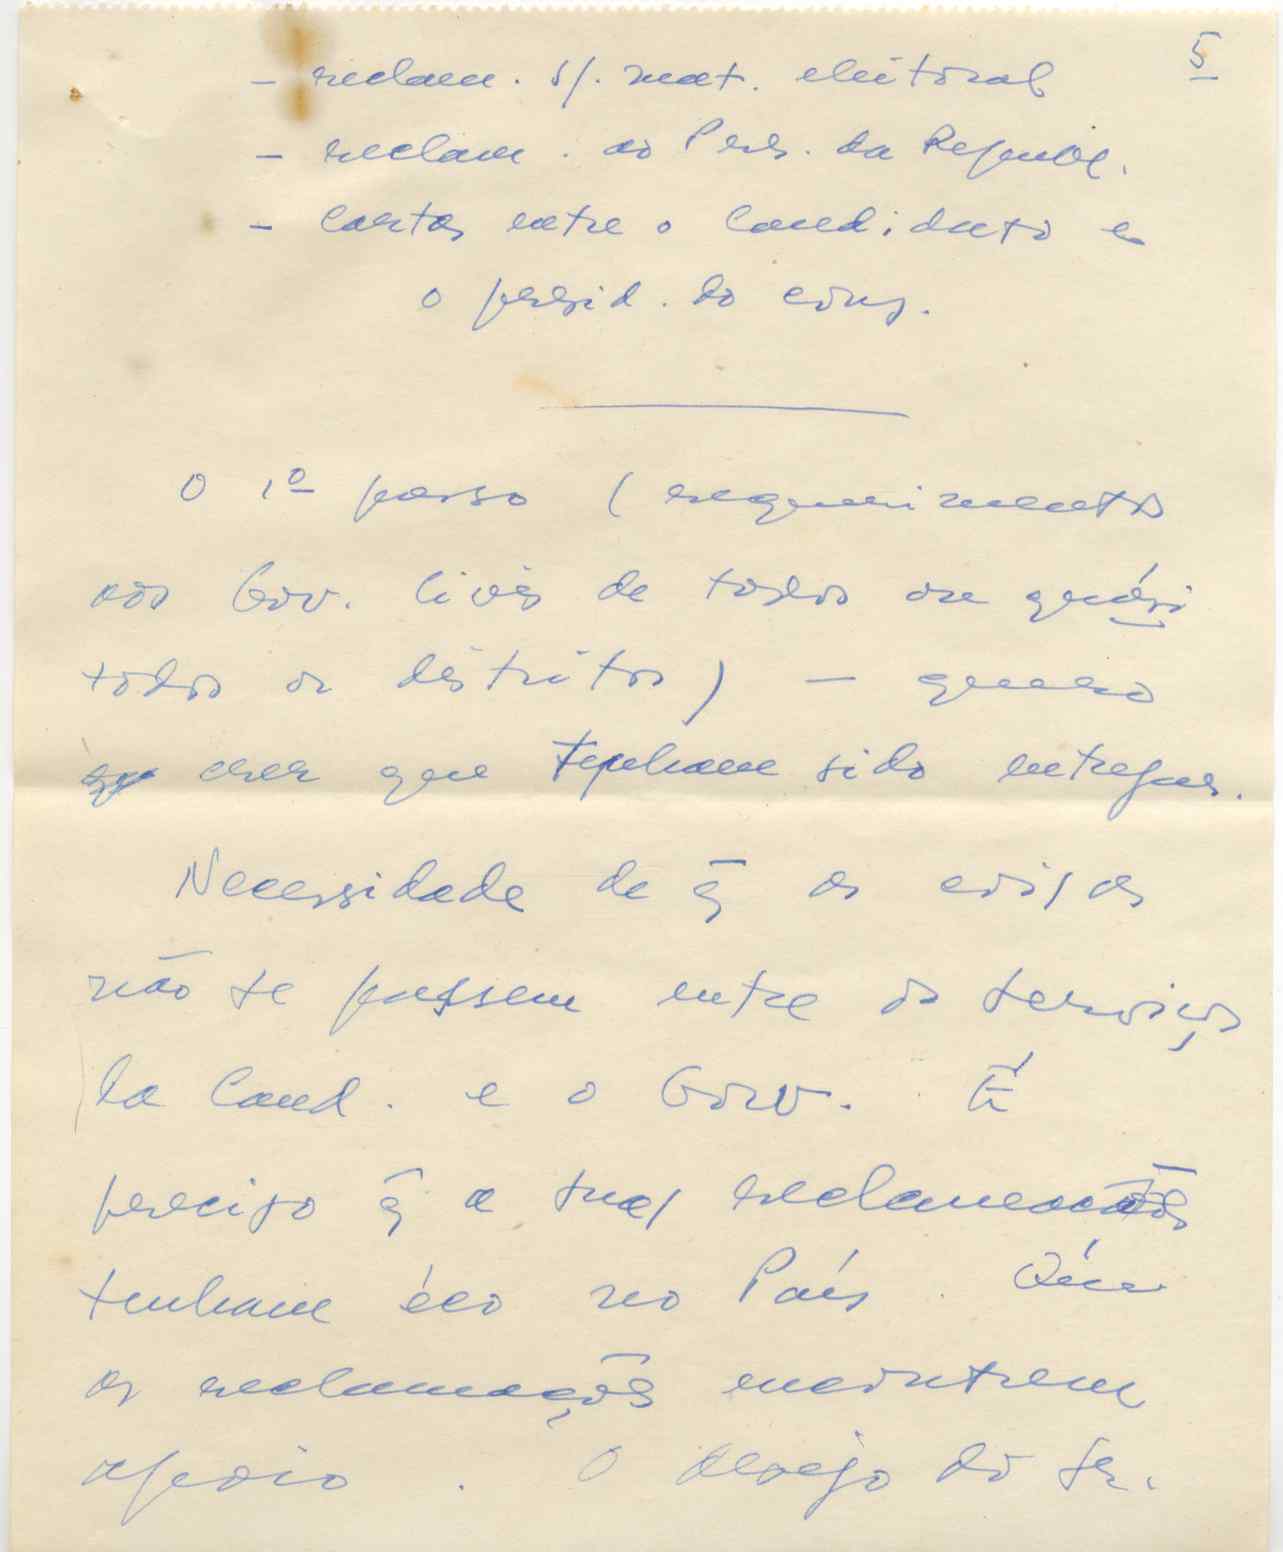 5
- reclam. s/. mat. eleitoral
- reclam. ao Pres. da Republ.
- Cartas entre o Candidato e
o presid. do cons.
O 1º passo (requerimento
aos Gov. Civis de todos ou quási
todos os distritos) - quero
crer que tenham sido entregues.
Necessidade de q̄ as coisas
não se passem entre os serviços
da Cand. e o Gov. É
preciso q̄ a suas reclamações
tenham éco no País. Q̄
as reclamações encontrem
apoio. O desejo do Sr.